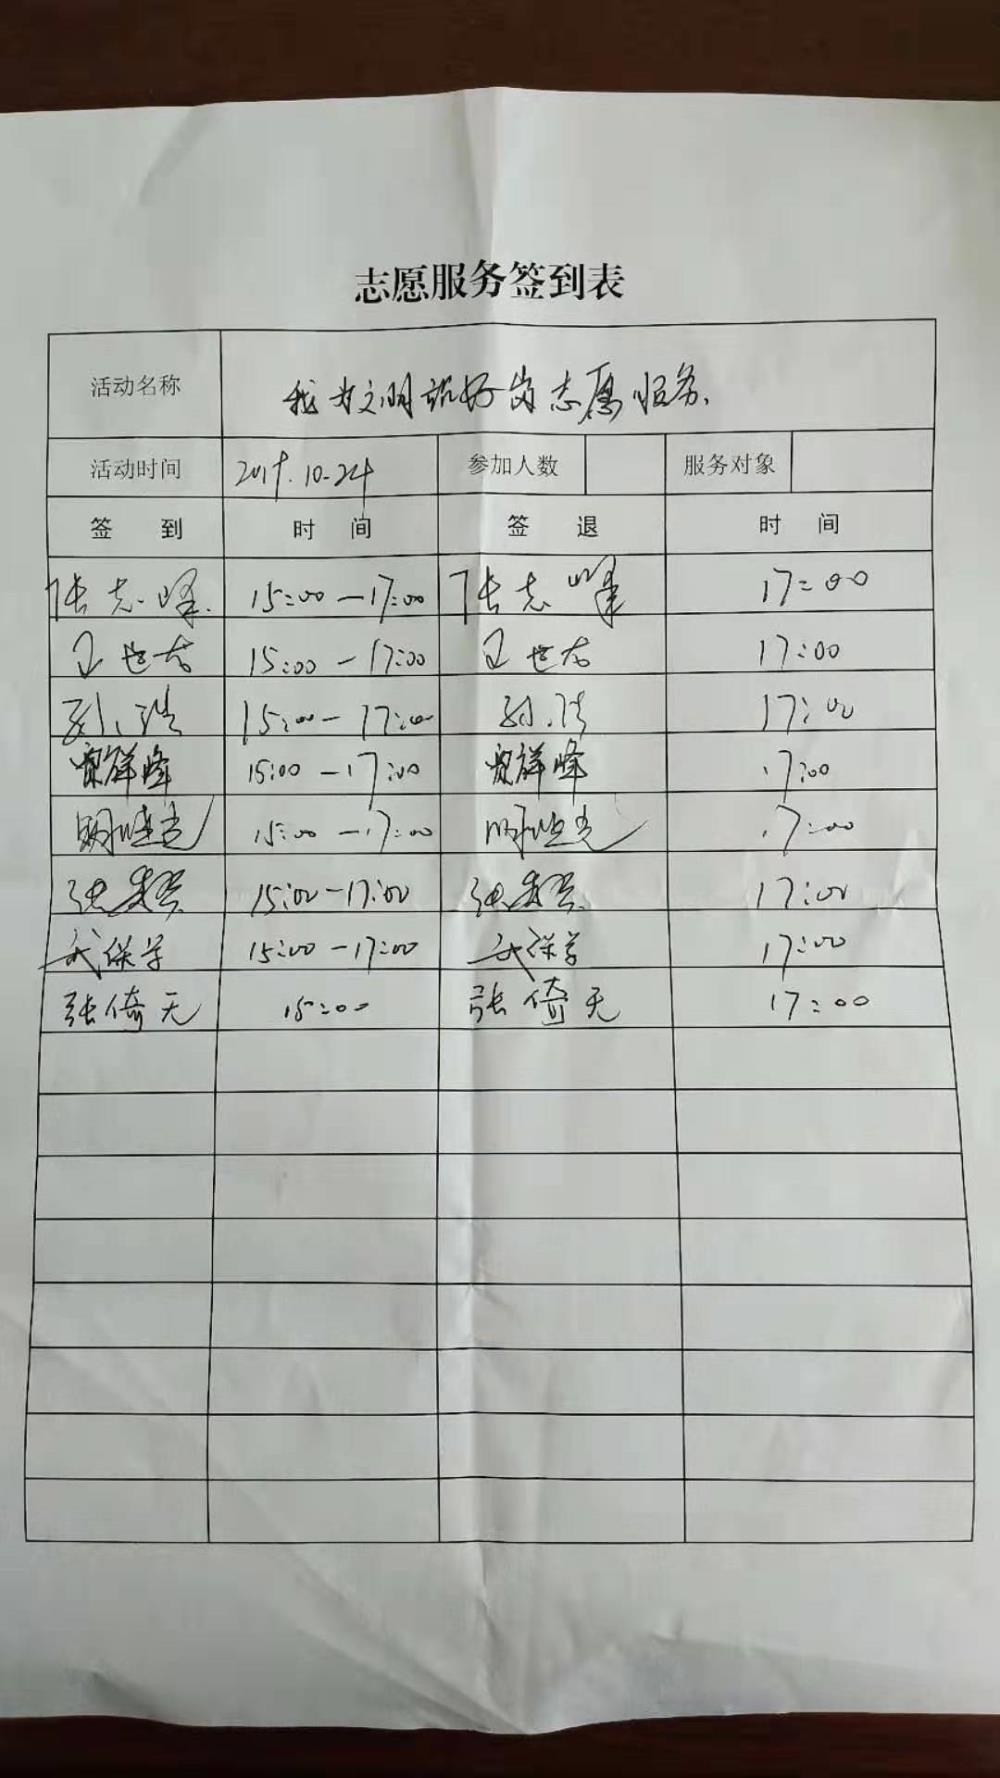 志愿服务签到表
活动名称 我为文明站好岗志愿服务
活动时间 2019.10.24 参加人数 服务对象
签 到 时 间 签 退 时 间
张志峰 15:00-17:00 张志峰 17:00
15:00-17:00 17:00
孙浩 15:00-17:00 孙浩 17:00
祥峰 15:00-17:00 祥峰 17:00
15:00-17:00 17:00
张 15:00-17:00 张 17:00
武 15:00-17:00 武 17:00
张倚天 15:00 张倚天 17:00